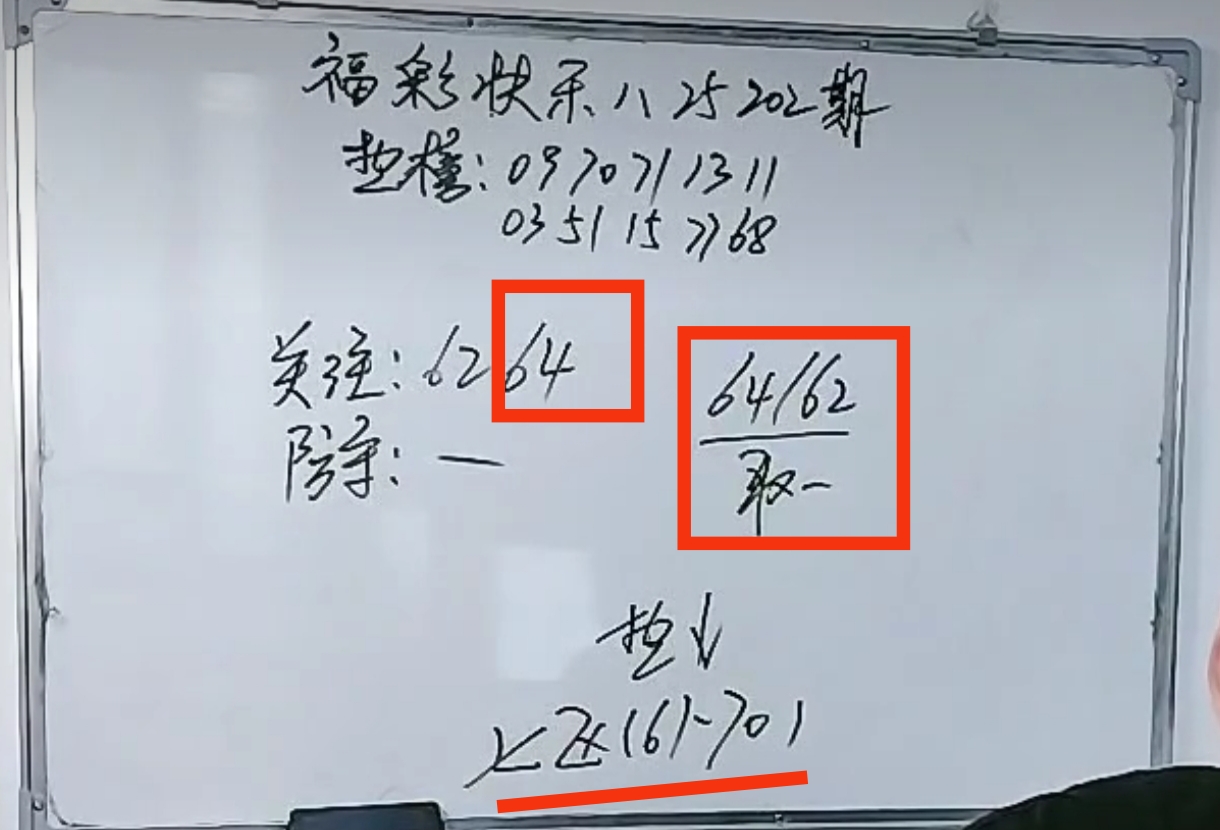 福彩快乐八25202期
垫搭:0970711311
0351157768
关注:6264
防守:一
64/62
取一
垫↓
区(61-70)